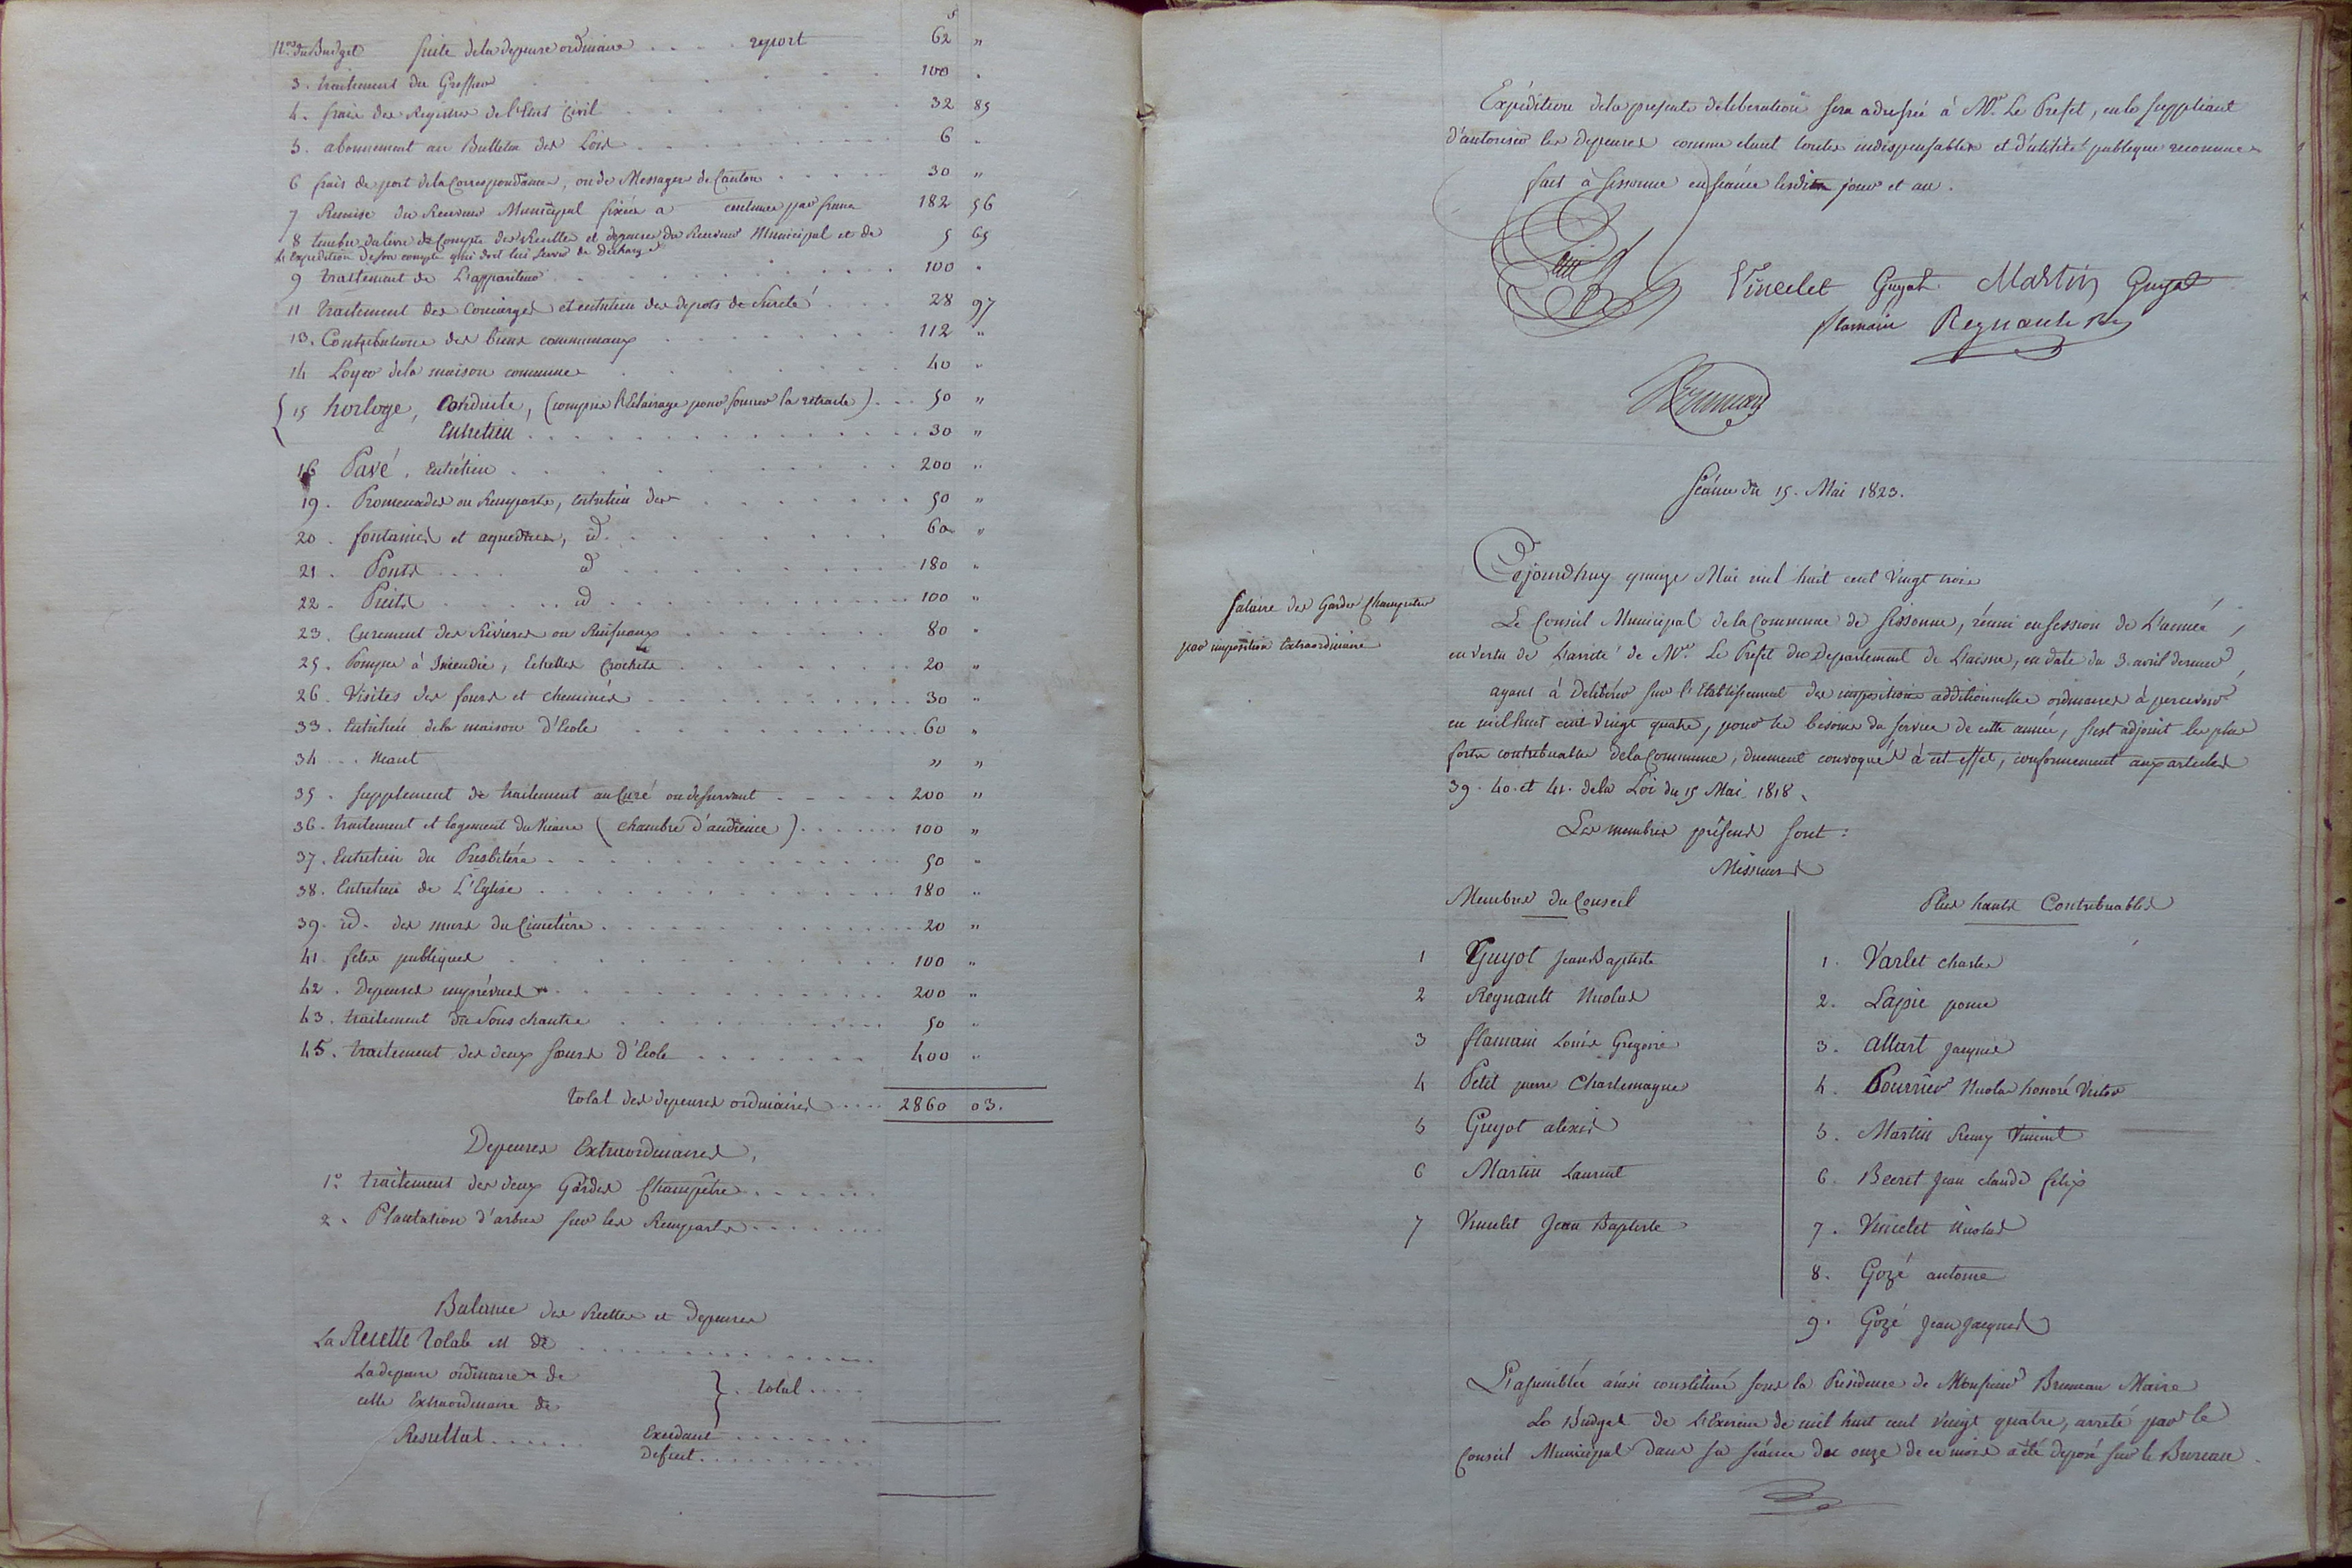 f
Nos du Budget suite de la depense ordinaire . . . . report 62 "
3. traitement du Greffier 100 .
4. frais des Registres de l'Etat Civil 32 85
5. abonnement au Bulletin des Lois 6 .
6 frais de port de la Correspondance, ou de Messager de Canton 30 "
7 Remise du Receveur Municipal fixée a centimes par franc 182 56
8 timbre du livre de Compte des Recettes et depenses du Receveur Municipal et de 5 65
L'Expedition de son compte qui doit lui servir de decharge
9 traitement de L'appariteur 100 .
11 traitement des Concierges et entretien des depots de Sureté 28 97
13. Contributions des biens communaux 112 "
14 Loyer de la maison commune 40 "
15 horloge, Conduite, (compris l'Eclairage pour sonner la retraite) 50 "
Entretien 30 "
16 Pavé, entretien 200 "
19. Promenades ou Remparts, entretien des 50 "
20. fontaines et aqueducs, id. 60 "
21. Ponts id 180 "
22. Puits id 100 "
23. Curement des Rivieres ou Ruisseaux 80 "
25. Pompes à Incendie, Echelles Crochets 20 "
26. Visites des fours et cheminées 30 "
33. Entretien de la maison d'Ecole 60 "
34 . . . Neant " "
35. Supplement de traitement au Curé ou desservant 200 "
36. traitement et logement du Vicaire (chambre d'audience) 100 "
37. Entretien du Presbitère 50 "
38. Entretien de L'Eglise 180 "
39. id. des murs du Cimetière 20 "
41. fêtes publiques 100 "
42. Depenses imprévues 200 "
43. traitement du Sous chantre 50 "
45. traitement des deux sœurs d'Ecole 400 "
total des depenses ordinaires .... 2860 03.
Depenses Extraordinaires,
1° traitement des deux Gardes Champêtre
2. Plantation d'arbres sur les Remparts
Balance des Recettes et depenses
La Recette totale est de
La depense ordinaire de
celle Extraordinaire de } . total . . . .
Resultat Excedant
Deficit
Expédition de la presente deliberation sera adressée à Mr. Le Prefet, en le suppliant
d'autoriser les Depenses comme etant toutes indispensables et d'utilité publique reconnue
fait à Sissonne en séance lesdits jour et an.
Vincelet Guyot Martin Guyot
flamain Regnault
Bruneau
Séance du 15. Mai 1823.
Salaire des Gardes Champetres
par imposition Extraordinaire
Cejourdhuy quinze Mai mil huit cent vingt trois
Le Conseil Municipal de la Commune de Sissonne, réuni en session de L'année,
en vertu de L'arrêté de Mr. Le Prefet du Departement de L'aisne, en date du 3. avril dernier,
ayant à Delibérer sur l'Etablissement des impositions additionnelles ordinaires à percevoir
en mil huit cent vingt quatre, pour les besoins du service de cette année, s'est adjoint les plus
forts contribuables de la Commune, duement convoqués à cet effet, conformement aux articles
39. 40. et 41. de la Loi du 15 Mai 1818.
Les membres présens sont :
Messieurs
Membres du Conseil Plus hauts Contribuables
1 Guyot Jean Baptiste 1. Varlet charles
2 Regnault Nicolas 2. Lapie pierre
3 flamain Louis Gregoire 3. Allart Jacques
4 Petit pierre Charlemagne 4. Pourrier Nicolas honoré Victor
5 Guyot alexis 5. Martin Remy Vincent
6 Martin Laurent 6. Becret Jean claude felix
7 Vincelet Jean Baptiste 7. Vincelet Nicolas
8. Gozé antoine
9. Gozé Jean Jacques
L'assemblée ainsi constituée sous la Présidence de Monsieur Bruneau Maire
Le Budget de L'Exercice de mil huit cent vingt quatre, arreté par le
Conseil Municipal dans sa séance du onze de ce mois a été deposé sur le Bureau.